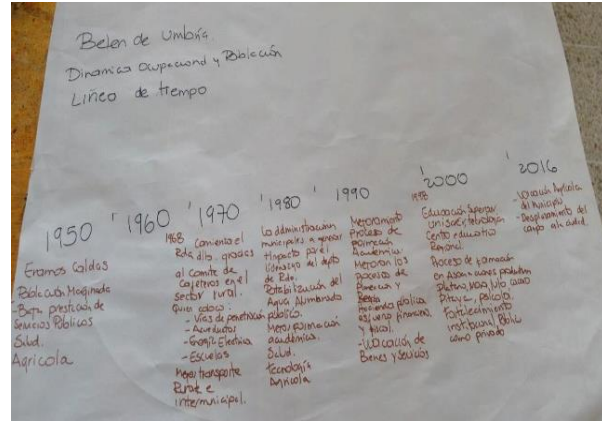 Belen de Umbria.
Dinamica Ocupacional y Población
Linea de tiempo
1950
Eramos Caldas
Población Marginada
-Baja prestación de
Servicios Públicos
Salud.
Agricola
1960
1970
1968 Comienza el
Rda dllo. gracias
al Comite de
Cafeteros en el
Sector rural.
- Vias de penetración
- Acueductos
- Energia Electrica
- Escuelas
Mejor transporte
Rural e
intermunicipal.
1980
La administración
municipales a generar
impacto para el
liderazgo del dpto
de Rda.
Potabilización del
Agua Alumbrado
público.
Mejor formación
académica.
Salud.
Tecnología
Agricola
1990
Mejoramiento
Proceso de
formación
Academica.
Mejoran los
Hacienda pública
esfuerzo financiero
y fiscal.
-Vocación de
Bienes y Servicios
2000
1998
Educación Superior
Centro educativo
Regional.
Proceso de formación
en Asociaciones
Platano
Fortalecimiento
como privado
2016
-Vocación Agricola
del Municipio
-Desplazamiento del
campo a la ciudad.